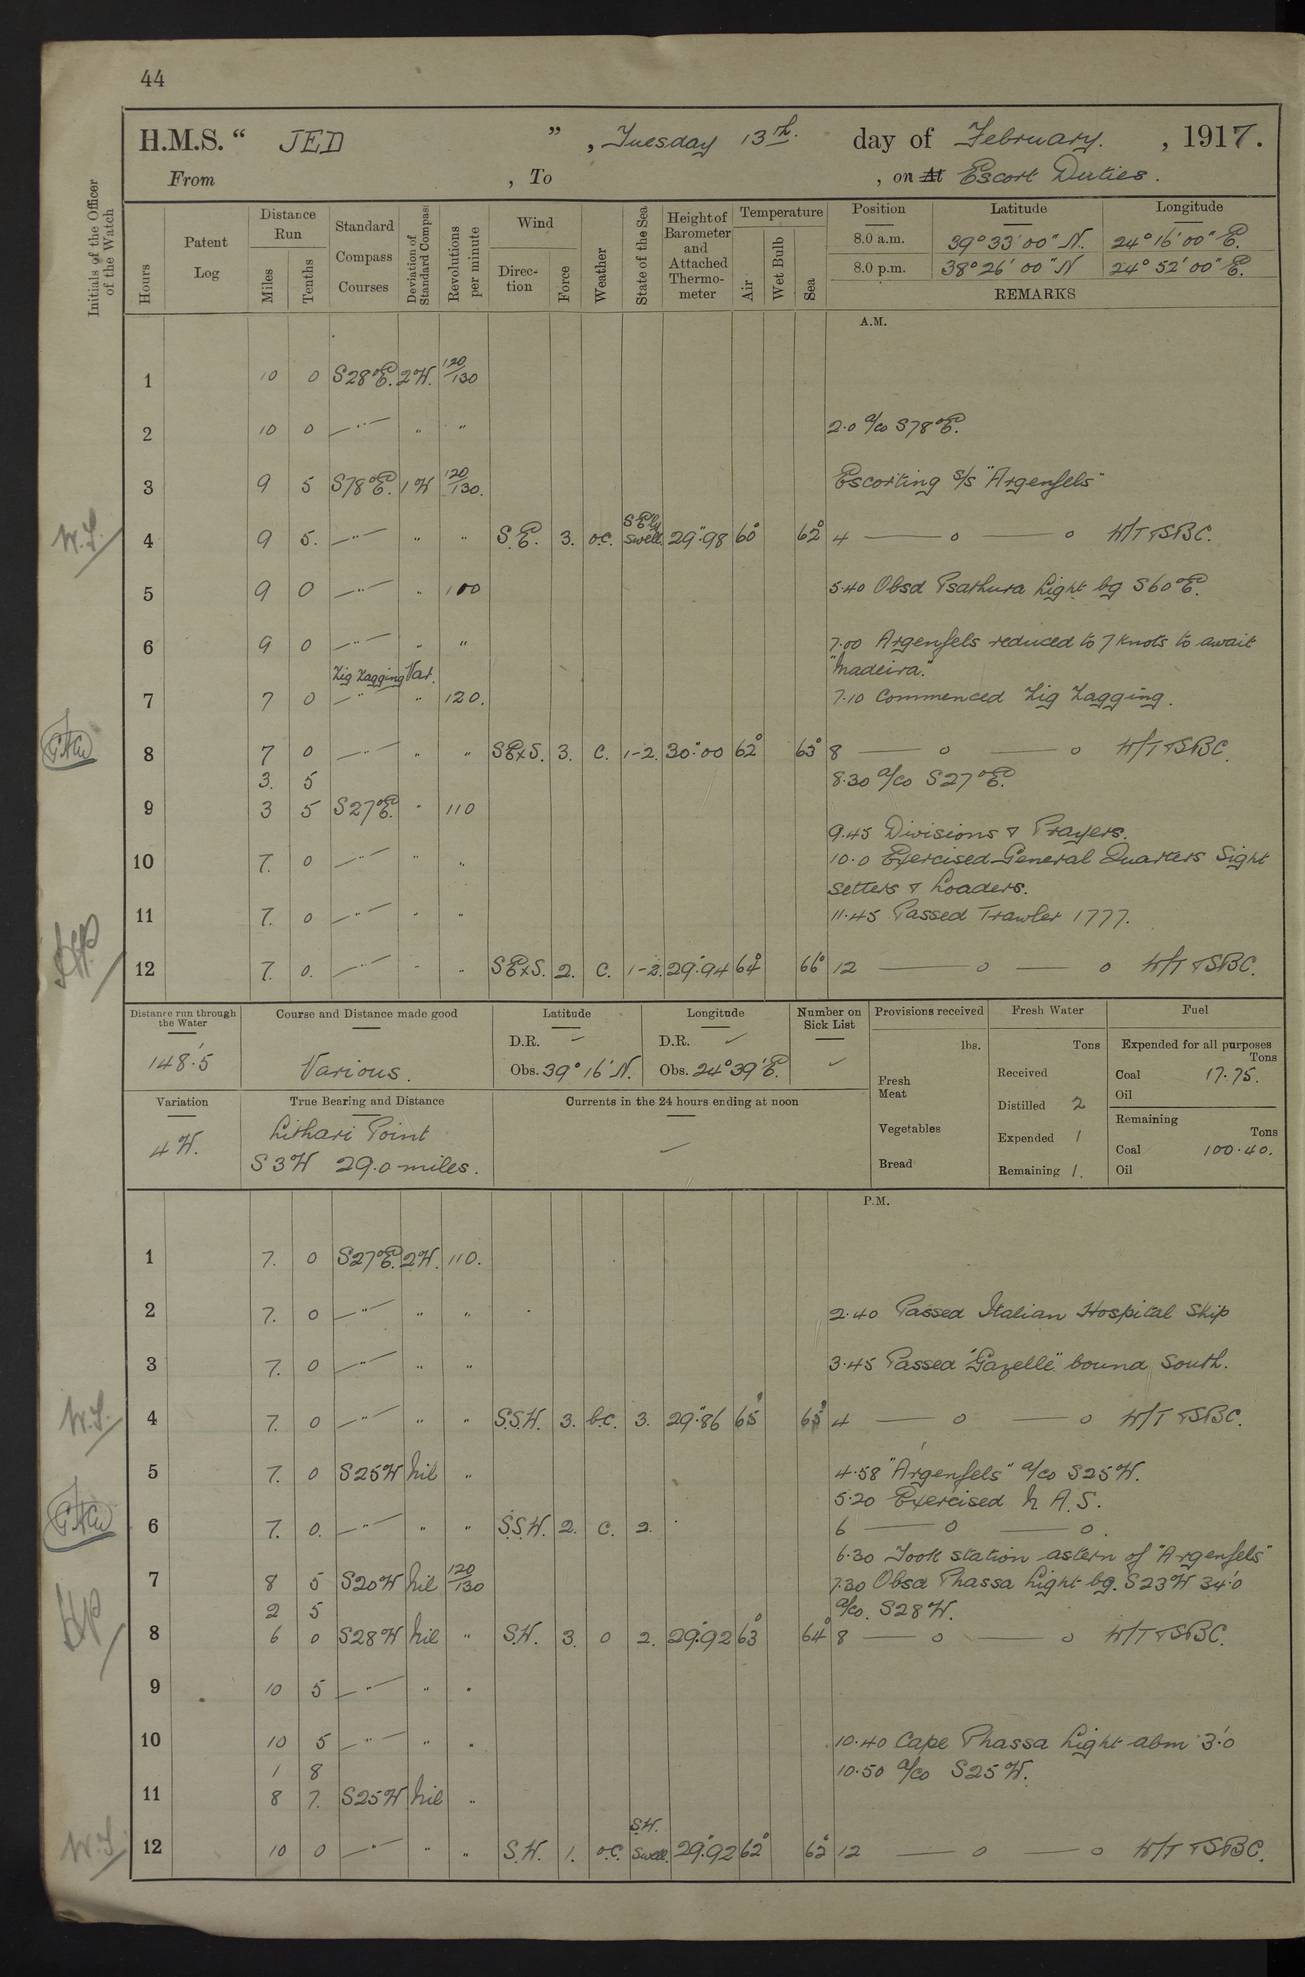 44
H.M.S. “ JED ” , Tuesday 13th. day of February. , 1917.
From , To , on At Escort Duties.
Initials of the Officer of the Watch
Hours
Patent Log
Distance Run
Miles
Tenths
Standard Compass Courses
Deviation of Standard Compass
Revolutions per minute
Wind
Direction
Force
Weather
State of the Sea
Height of Barometer and Attached Thermometer
Temperature
Air
Wet Bulb
Sea
Position Latitude Longitude
8.0 a.m. 39° 33' 00" N. 24° 16' 00" E.
8.0 p.m. 38° 26' 00" N 24° 52' 00" E.
REMARKS
A.M.
1 10 0 S28°E. 2W. 120/130
2 10 0 —"— " " 2.0 a/co S78°E.
3 9 5 S78°E. 1W 120/130. Escorting S/S "Argenfels"
W.S. 4 9 5. —"— " " S.E. 3. o.c. SEly Swell. 29".98 60° 62° 4 —— o —— o W/T & SBC.
5 9 0 —"— " 100 5.40 Obsd Psathura Light bg S60°E.
6 9 0 —"— " " 7.00 Argenfels reduced to 7 knots to await
"Madeira."
7 7 0 Zig Zagging Var. —"— " 120. 7.10 Commenced Zig Zagging.
8 7 0 —"— " " SExS. 3. c. 1-2. 30".00 62° 63° 8 —— o —— o W/T & SBC.
3. 5 8.30 a/co S27°E.
9 3 5 S27°E. " 110
9.45 Divisions & Prayers.
10 7. 0 —"— " " 10.0 Exercised General Quarters Sight
Setters & Loaders.
11 7. 0 —"— " " 11.45 Passed Trawler 1777.
12 7. 0. —"— " " SExS. 2. c. 1-2. 29".94 64° 66° 12 —— o —— o W/T & SBC.
Distance run through the Water
148'.5
Course and Distance made good
Various.
Latitude
D.R. ✓
Obs. 39° 16' N.
Longitude
D.R. ✓
Obs. 24° 39' E.
Number on Sick List
✓
Provisions received
lbs.
Fresh Meat
Vegetables
Bread
Fresh Water
Tons
Received
Distilled 2
Expended 1
Remaining 1.
Fuel
Expended for all purposes
Tons
Coal 17.75.
Oil
Remaining
Tons
Coal 100.40.
Oil
Variation
4W.
True Bearing and Distance
Lithari Point
S3W 29.0 miles.
Currents in the 24 hours ending at noon
—
P.M.
1 7. 0 S27°E. 2W. 110.
2 7. 0 —"— " " 2.40 Passed Italian Hospital Ship
3 7. 0 —"— " " 3.45 Passed "Gazelle" bound South.
W.S. 4 7. 0 —"— " " S.S.W. 3. b.c. 3. 29".86 65° 65° 4 —— o —— o W/T & SBC.
5 7. 0 S25W Nil " 4.58 "Argenfels" a/co S25W.
5.20 Exercised N.A.S.
6 7. 0. —"— " " S.S.W. 2. c. 2. 6 —— o —— o.
6.30 Took station astern of "Argenfels"
7 8 5 S20W Nil 120/130 7.30 Obsd Phassa Light bg. S23W 34'.0
2 5 a/co. S28W.
8 6 0 S28W Nil " S.W. 3. o 2. 29".92 63° 64° 8 —— o —— o W/T & SBC.
9 10 5 —"— " "
10 10 5 —"— " " 10.40 Cape Phassa Light abm 3'.0
1 8 10.50 a/co S25W.
11 8 7. S25W Nil "
W.S. 12 10 0 —"— " " S.W. 1. o.c. S.W. Swell. 29".92 62° 62° 12 —— o —— o W/T & SBC.